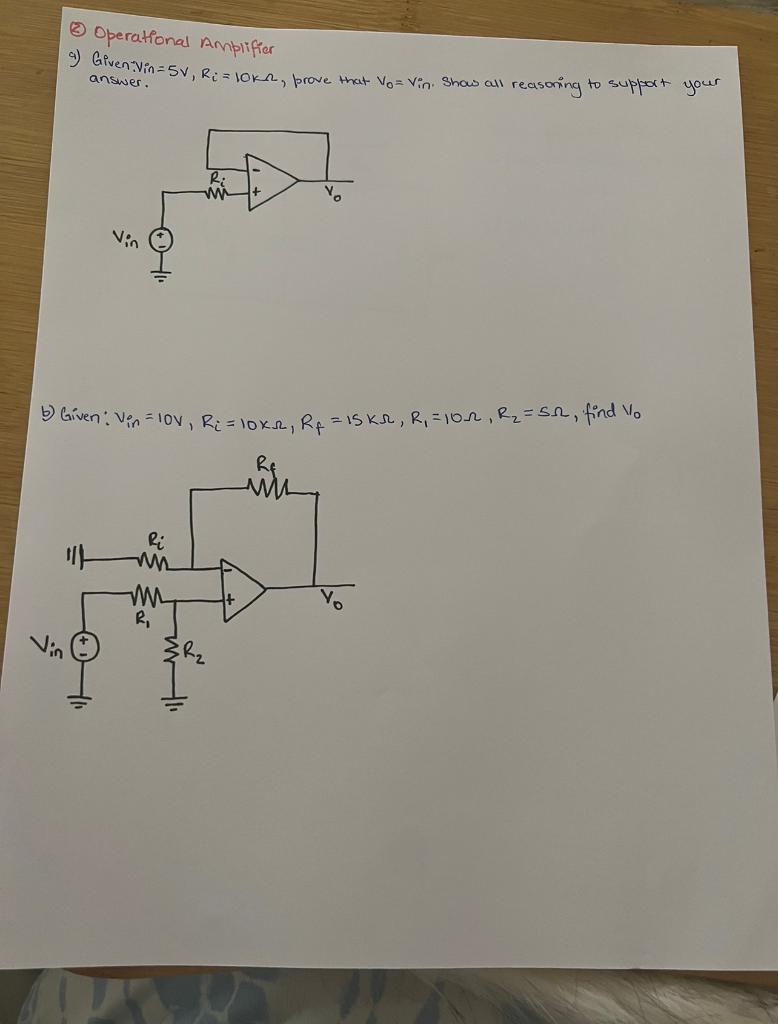 ② Operational Amplifier
a) Given: Vin = 5V, Ri = 10KΩ, prove that Vo = Vin. Show all reasoning to support your
answer.
Ri
-
+
Vo
Vin
+
-
b) Given: Vin = 10V, Ri = 10KΩ, Rf = 15KΩ, R1 = 10Ω, R2 = 5Ω, find Vo
Rf
Ri
-
+
R1
Vo
Vin
+
-
R2